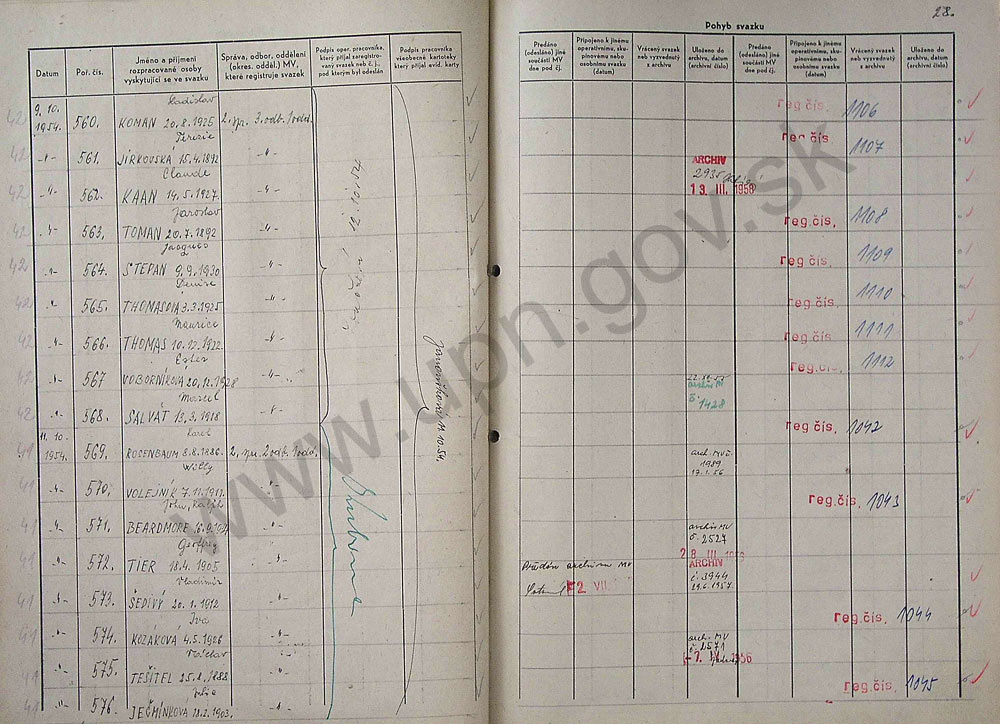 28.
Pohyb svazku
Datum
Poř. čís.
Jméno a příjmení
rozpracované osoby
vyskytující se ve svazku
Správa, odbor, oddělení
(okres. odděl.) MV,
které registruje svazek
Podpis oper. pracovníka,
který přijal zaregistro-
vaný svazek neb č. j.,
pod kterým byl odeslán
Podpis pracovníka
všeobecné kartoteky
který přijal evid. karty
Předáno
(odesláno) jiné
součásti MV
dne pod čj.
Připojeno k jinému
operativnímu, sku-
pinovému nebo
osobnímu svazku
(datum)
Vrácený svazek
neb vyzvednutý
z archivu
Uloženo do
archivu, datum
(archivní číslo)
Předáno
(odesláno) jiné
součásti MV
dne pod čj.
Připojeno k jinému
operativnímu, sku-
pinovému nebo
osobnímu svazku
(datum)
Vrácený svazek
neb vyzvednutý
z archivu
Uloženo do
archivu, datum
(archivní číslo)
Ladislav
9. 10.
1954. 560. KOMAN 20.8.1925 2. spr. 3. odb. 1 odd. reg. čís. 1106
Terezie
-"- 561. JÍRKOVSKÁ 15.4.1892 -"- reg. čís 1107
Claude
-"- 562. KAAN 14.5.1927. -"- ARCHIV
2935
13. III. 1958
Jaroslav
-"- 563. TOMAN 20.7.1892 -"- reg. čís. 1108
Jacques
-"- 564. ŠTEPAN 9.9.1930 -"- reg. čís. 1109
Denise
-"- 565. THOMASOVA 3.3.1925 -"- reg. čís. 1110
Maurice
-"- 566. THOMAS 10.12.1922. -"- reg. čís. 1111
Ester
-"- 567 VOBORNÍKOVÁ 20.12.1928 -"- reg. čís. 1112
Marcel
-"- 568. SALVÁT 13.3.1918 -"- archiv MV
č. 1428
Karel
11. 10.
1954. 569. ROSENBAUM 8.8.1886. 2. spr. 2 odb. 1 odd. reg. čís. 1042
Willy
-"- 570. VOLEJNÍK 7.11.1911. -"- arch. MV č.
1989
17.1.56
John, Ralph
-"- 571. BEARDMORE -"- reg. čís. 1043
Geoffrey
-"- 572. TIER 18.4.1905 -"- archiv MV
č. 2527
28 III.
Vladimír
-"- 573. ŠEDIVÝ 20.1.1912 -"- archivu MV
2 VII.
ARCHIV
č. 3944
Iva
-"- 574. KOZÁKOVÁ 4.5.1926 -"- reg. čís. 1044
Václav
-"- 575. TEŠITEL 25.1.1888 -"- arch. MV
č. 2571
Julie
-"- 576. JEČMÍNKOVÁ 18.2.1903. -"- reg. čís. 1045
11.10.54.
www.upn.gov.sk